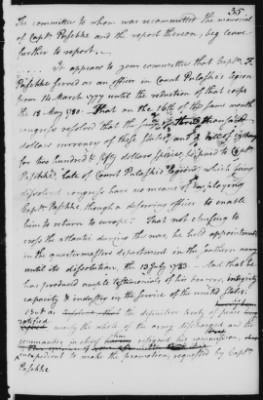 35
The committee to whom was recommitted the memorial
of Capt. Paschke and the report thereon, beg leave
further to report. . . .
It appears to your committee that Capt. F.
Paschke served as an officer in Count Pulaski's legion
from 14 March 1777 until the reduction of that corps
the 18 May 1780. That on the 16th of the same month
congress resolved that the sum of three thousand
dollars currency of these States, and a bill of exchange
for two hundred & fifty dollars specie, be paid to Capt.
Paschke late of Count Pulaski's legion, which being
dissolved congress have no means of employing
Capt. Paschke though a deserving officer to enable
him to return to europe: That not chusing to
cross the atlantic during the war he held appointments
in the quartermasters department in the southern army
until its dissolution, the 13 July 1783. And that he
has produced ample testimonies of his bravery, integrity
capacity & industry in the service of the united States.
But as the definitive treaty of peace
ratified nearly the whole of the army discharged and the
commander in chief resigned his commission,
inexpedient to make the promotion requested by Capt.
Paschke